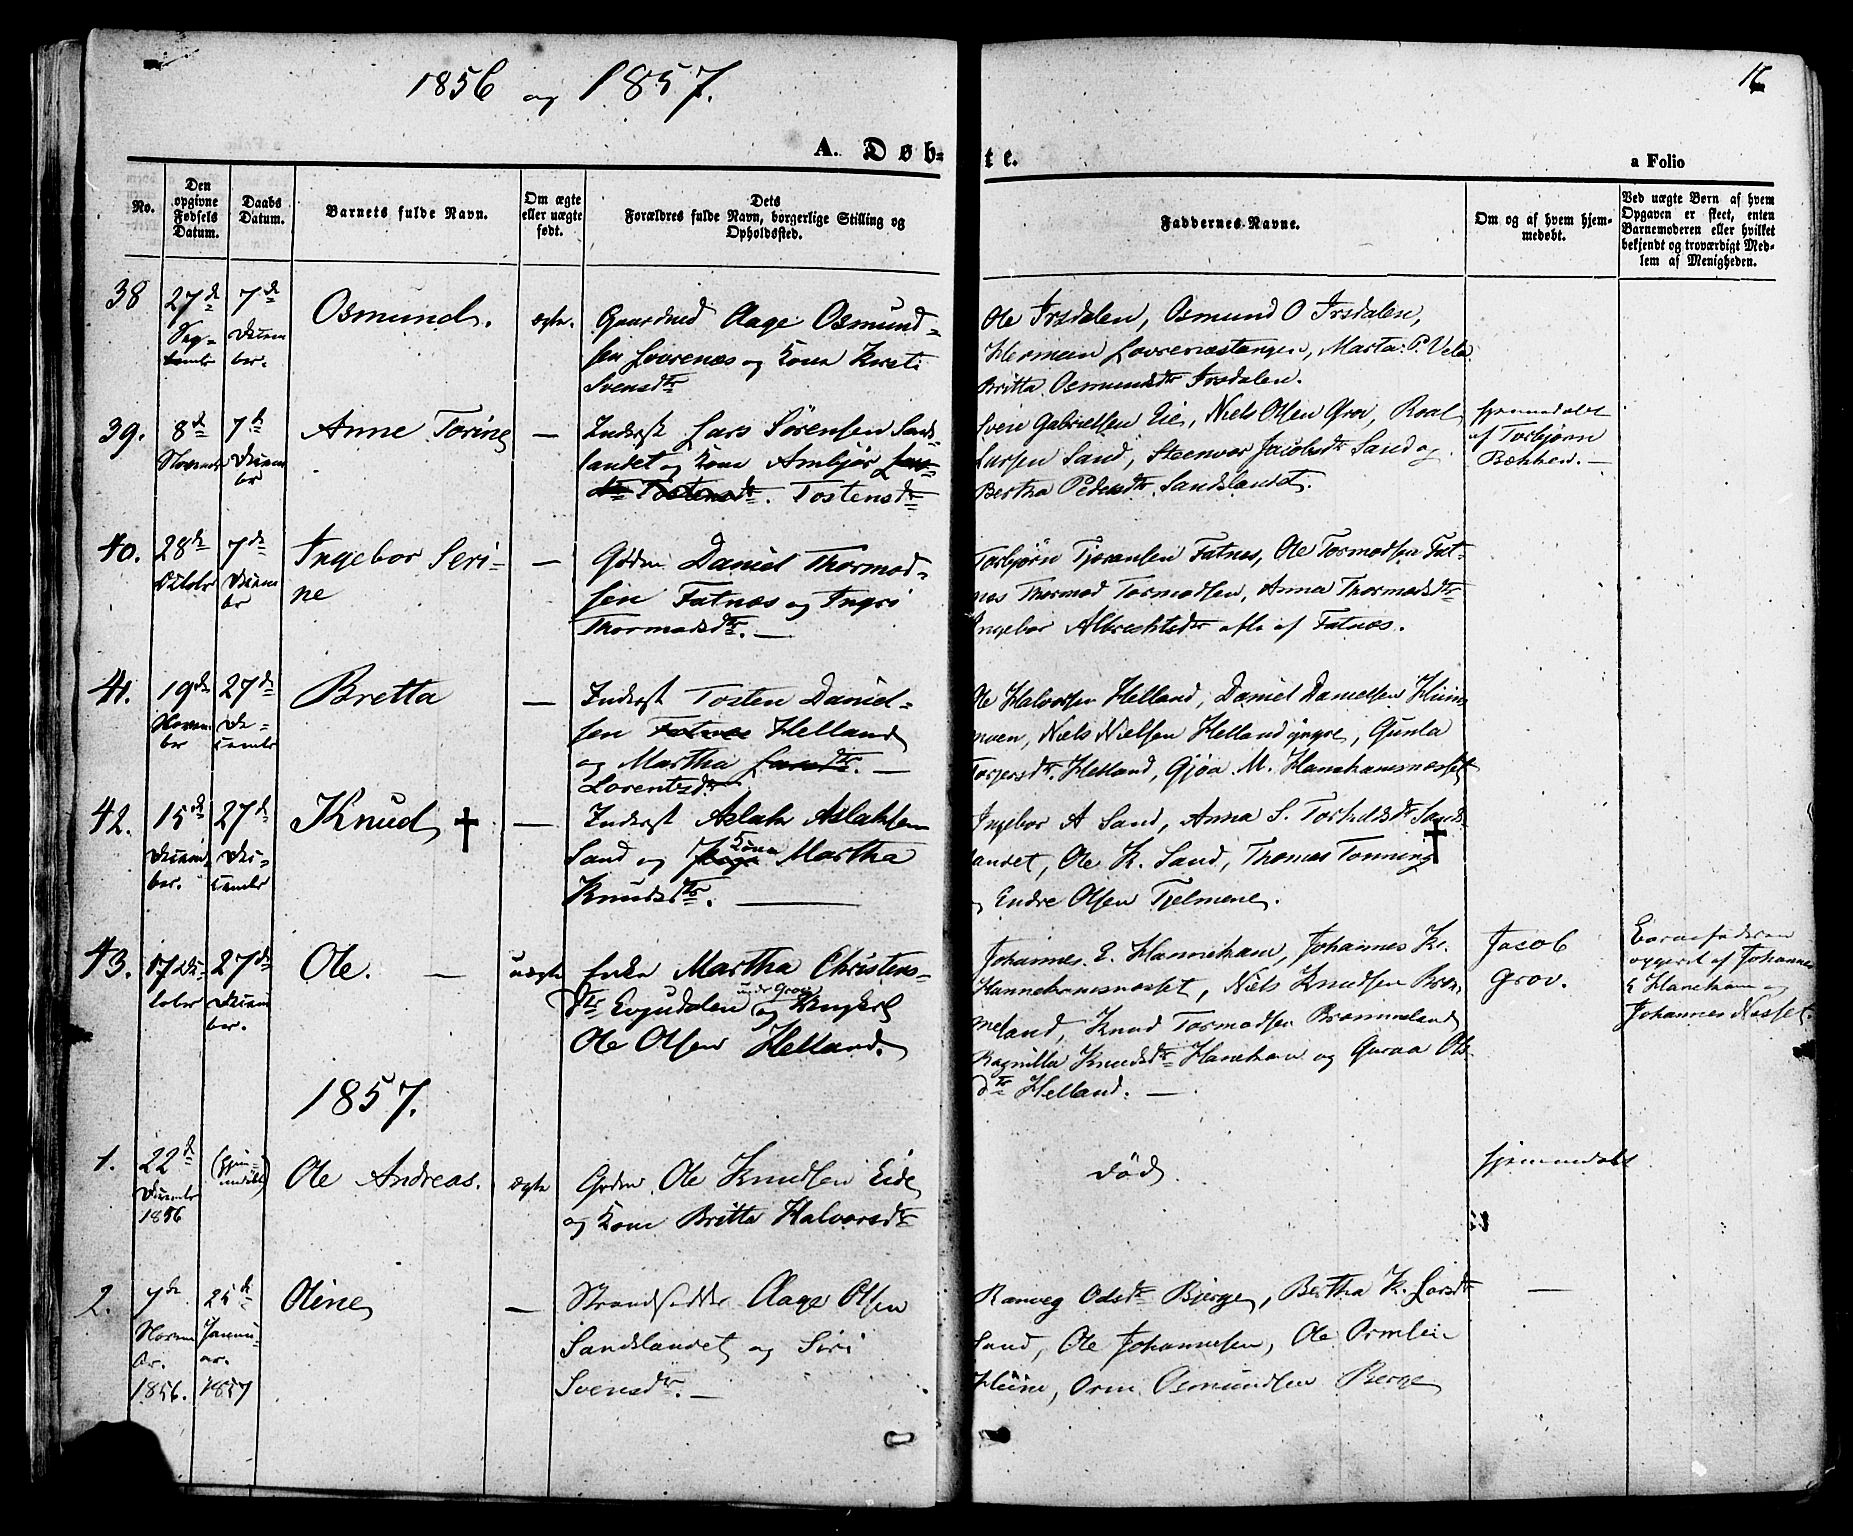 1856 og 1857.
16
A. Døb=
te.
a Folio
No.
Den opgivne Fødsels Datum.
Daabs Datum.
Barnets fulde Navn.
Om ægte eller uægte født.
Dets
Forældres fulde Navn, borgerlige Stilling og
Opholdssted.
Faddernes Navne.
Om og af hvem hjem-
medøbt.
Ved uægte Børn af hvem
Opgaven er skeet, enten
Barnemoderen eller hvilket
bekjendt og troværdigt Med-
lem af Menigheden.
38
27de
Sep-
tember
7de
Decem
ber.
Osmund.
ægte.
Gaardmd Aage Osmund-
sen Lovrenæs og Kone Kirsti
Svensdtr
Ole Irsdalen, Osmund O Irsdalen,
Herman Lovrenæstangen, Marta P. Vela
Britta Osmundsdtr Irsdalen.
39.
8de
Novemb
7de
Decem
ber
Anne Torine
—
Inderst Lars Sörensen Sands-
landet og Kone Ambjør
Tostensdtr. Tostensdtr
Svein Gabrielsen Eie, Niels Olsen Grov, Roal
Larsen Sand, Steenvor Jacobsdtr Sand og
Bertha Pedersdtr Sandslandet.
hjemmedøbt
af Torbjørn
Bækken. —
40.
28de
October
7de
Decem
ber
Ingebor Seri-
ne
—
Gdrm Daniel Thormod-
sen Fatnæs og Ingri
Thormodsdtr. —
Torbjörn Tjeransen Fatnes, Ole Tormodsen Fat-
nes Thormod Tormodsen, Anna Thormodsdtr
Ingebor Albrechtsdtr alle af Fatnæs.
41.
19de
Novem
ber
27de
De-
cember
Bretta
—
Inderst Tosten Daniel-
sen Fatnæs Helland
og Martha Larsdtr. —
Lorentsdtr
Ole Halvorsen Helland, Daniel Danielsen
moen, Niels Nielsen Helland yngre, Gunla
Torgersdtr. Helland, Gjøa M. Hanehamsnæsset
42.
15de
Decem
ber.
27de
De-
cember
Knud †
—
Inderst Aslak Aslaksen
Sand og Kone Martha
Knudsdtr. —
Ingebor A Sand, Anna S. Torkelsdtr Sands-
landet, Ole K. Sand, Thomas Tonning †
og Endre Olsen Tjelmene.
43.
17 Oc-
tober
27de
Decem
ber.
Ole. —
uægte
Enke Martha Christens-
dtr Evjudalen under Grov og Ungkarl
Ole Olsen Helland.
Johannes E. Hanneham, Johannes K.
Hannehamsnæsset, Niels Knudsen Bröm-
meland, Knud Tormodsen Brömmeland
Ragnilla Knudsdtr Haneham og Guroa Ols-
dtr Helland. —
Jacob
Grov.
Barnefaderen
opgivet af Johannes
E Haneham og
Johannes Næsset.
1857.
1.
22de
December
1856
(hjem-
medøbt)
Ole Andreas.
ægte
Gdrm. Ole Knudsen Eide
og Kone Britta Halvorsdtr
død
hjemmedøbt
2.
7de
Novem
ber.
1856.
25de
Janu-
ar.
1857
Oline
—
Strandsidder Aage Olsen
Sandslandet og Siri
Svensdtr. —
Ranveg Odsdtr Bjerge, Bertha K. Larsdtr
Sand, Ole Johannesen, Ole Ormsen
Heine, Orm Osmundsen Berge
—